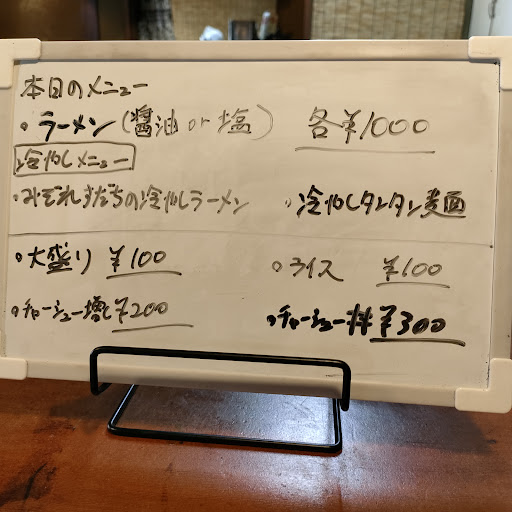 本日のメニュー
・ラーメン(醤油 or 塩) 各¥1000
冷やしメニュー
・みぞれすだちの冷やしラーメン ・冷やしタンタン麺
・大盛り ¥100 ・ライス ¥100
・チャーシュー増し ¥200 ・チャーシュー丼 ¥300